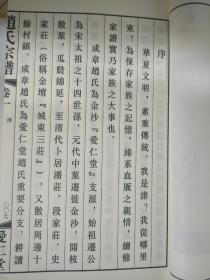 序
華夏文明，素重傳統。我是誰？我從哪里
來？為保存家族之記憶，維系血脈之親情，續修
家譜實乃家族之大事也。
成章趙氏為金沙『愛仁堂』支派，始祖遷公
為宋太祖之十四世孫，元代中葉遷徙金沙，開枝
散葉，瓜瓞綿延，至清代卜居潘莊、段家莊、史
家莊（俗稱金壇『城東三莊』），又散居周邊十
餘村鎮。成章趙氏為愛仁堂趙氏重要分支，耕讀
趙氏宗譜 卷一 序 〇〇七 愛仁堂